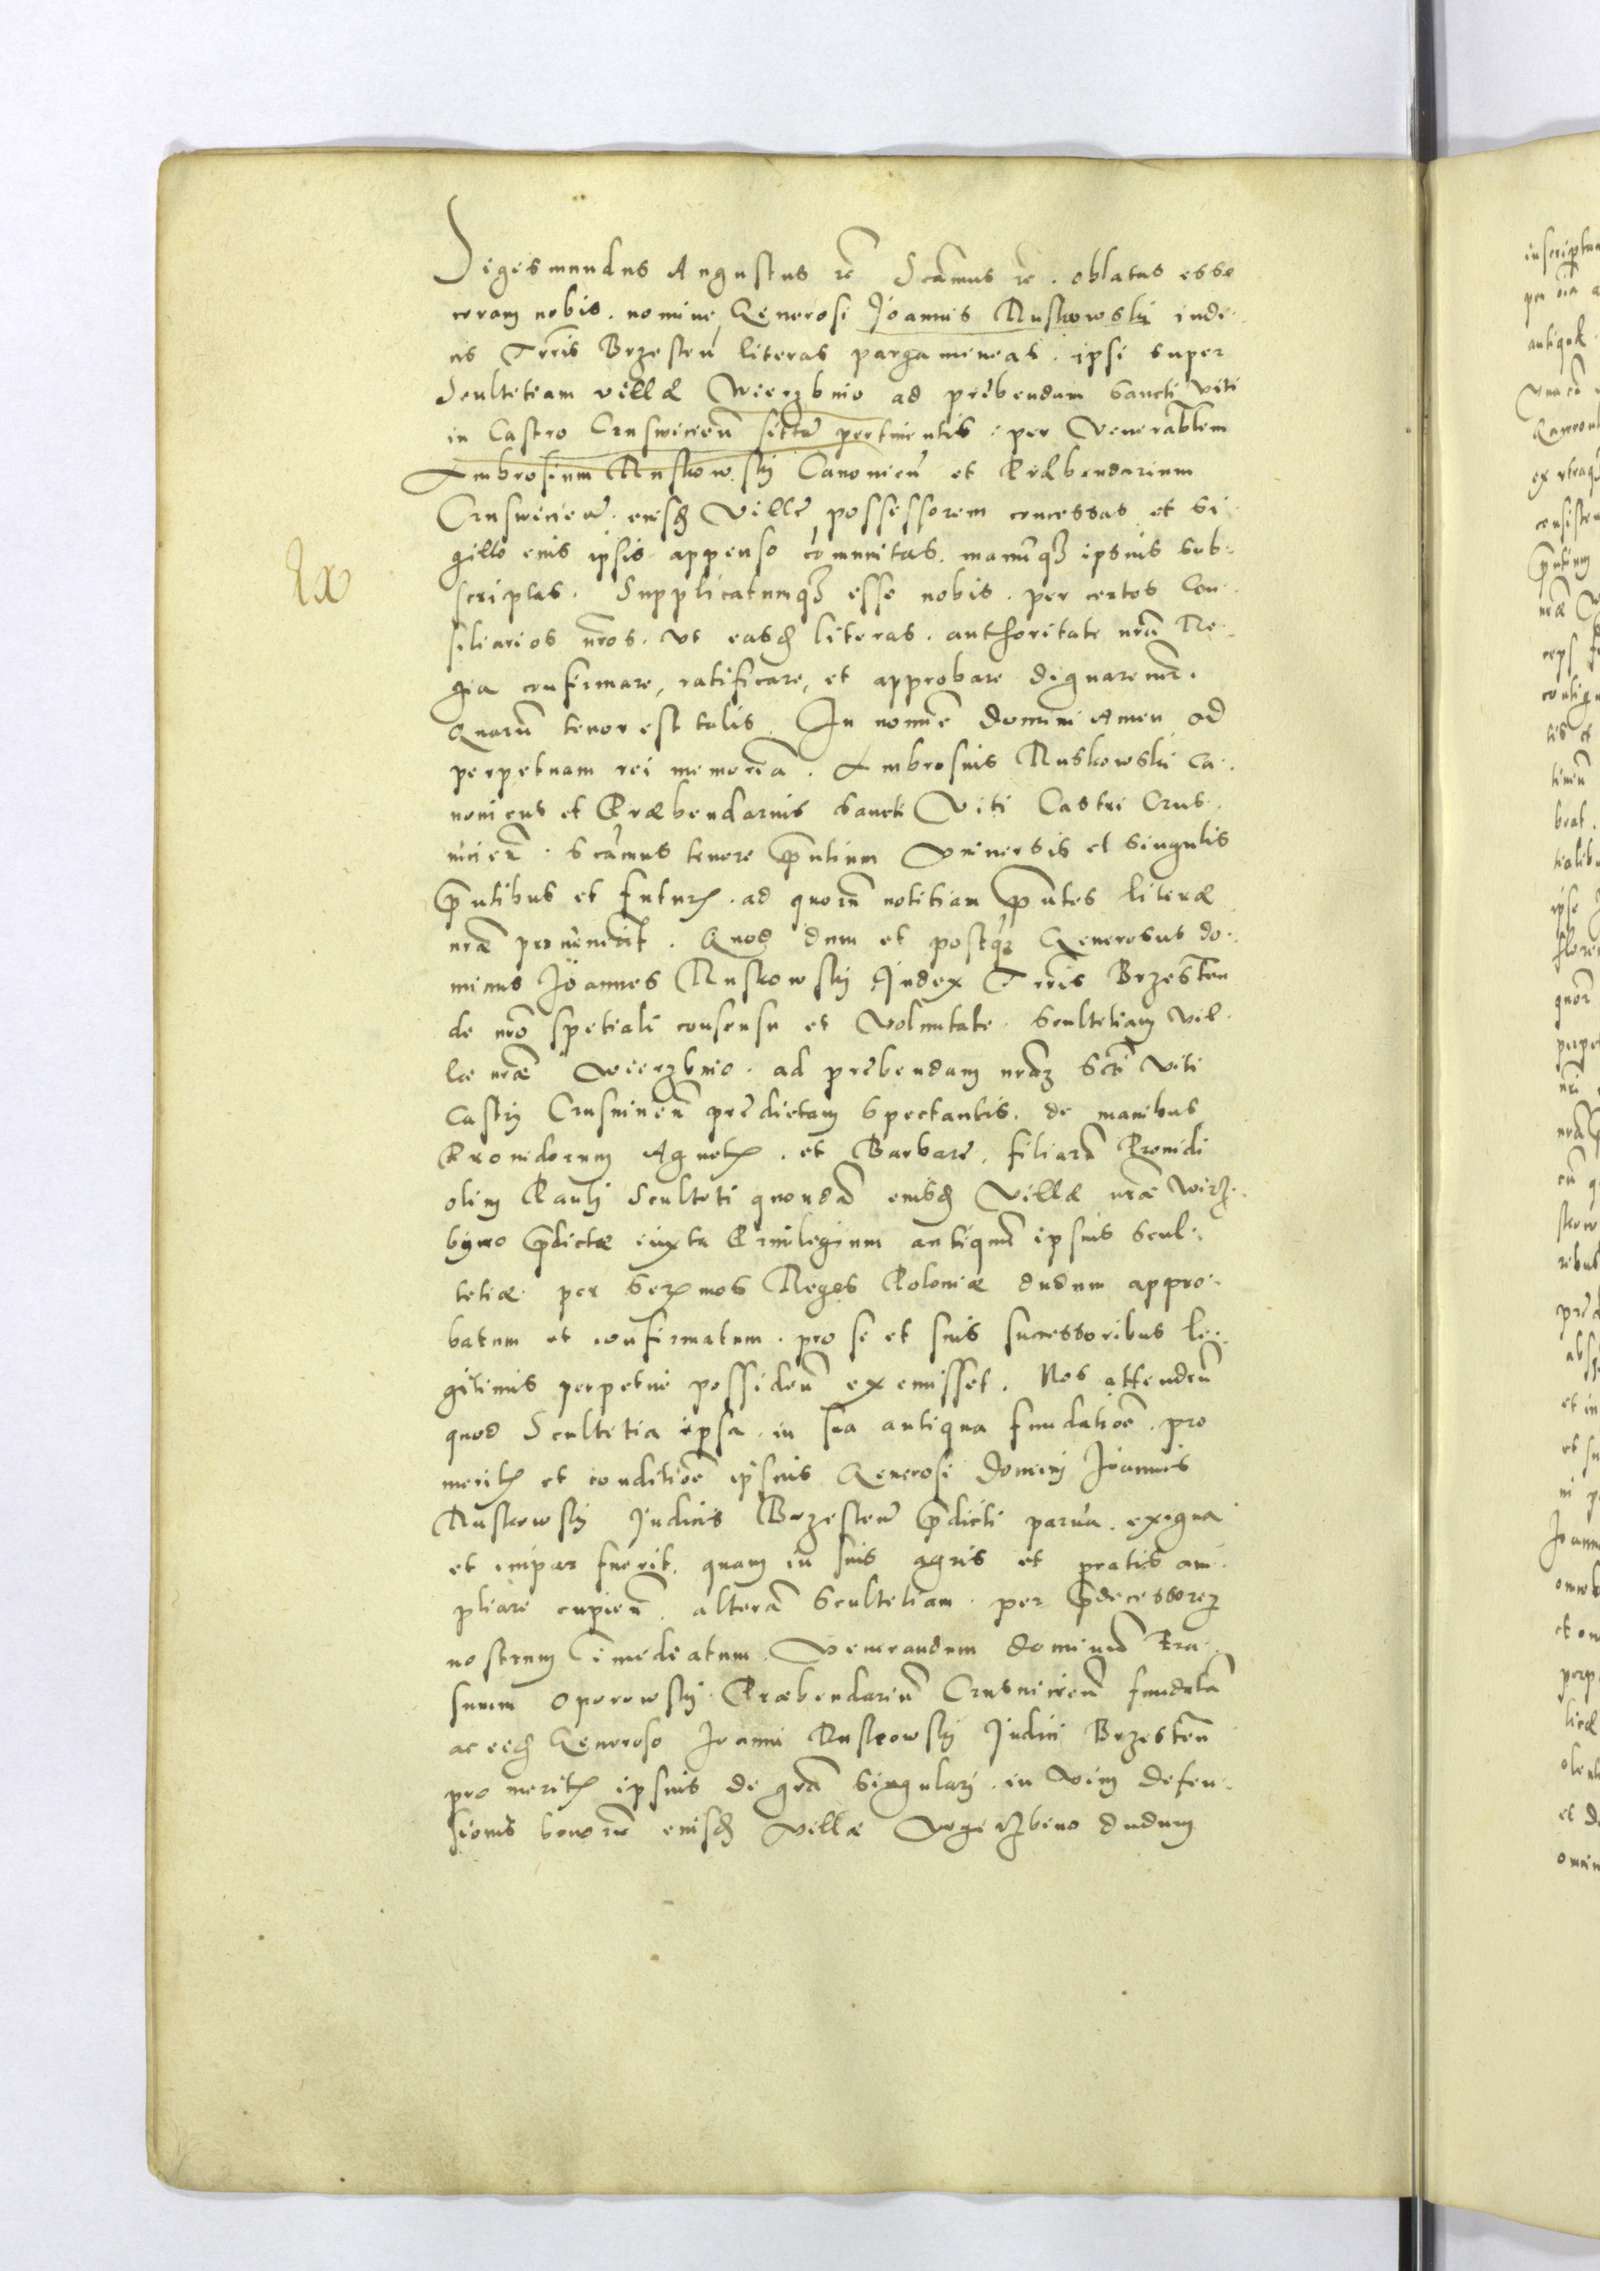 Sigismundus Augustus rē Scāmus rē. oblatas esse
coram nobis. nomine Generosi Joannis Ruskowski iudi-
cis Terrīs Brzesteñ literas pargameneas. ipsi super
Scultetiam villæ Wierzbno ad prębendam Sancti Viti
in Castro Crusvicieñ sittę pertinentis. per Venerabilem
Ambrosium Ruskowskij Canonicū et Præbendarium
Crusvicieñ. eiusd Villę possessorem concessas et si-
gillo eius ipsis appenso cōmunitas. manūqȝ ipsius sub-
scriptas. Supplicatumqȝ esse nobis. per certos Con-
siliarios nr̄os. ut easd literas. authoritate nrā Re-
gia confirmare, ratificare, et approbare dignaremr̄.
Quarū tenor est talis. In nomīe Domini Amen ad
perpetuam rei memoriā. Ambrosius Ruskowski Ca-
nonicus et Præbendarius Sancti Viti Castri Crus-
vicieñ. Scāmus tenore pn̄tium Vniversis et singulis
pn̄tibus et futurꝭ. ad quorū notitiam pn̄tes literæ
nræ pervenerīt. Quod dum et postqȝ Generosus do-
minus Joannes Ruskowskij Judex Terrīs Brzesteñ
de nrō spetiali consensu et Voluntate. Scultetiam vil-
læ nræ Wierzbno. ad prębendam nrāȝ Sctī Viti
Castrij Crusvicieñ prędictam spectantis. de manibus
Providorum Agnetꝭ. et Barbarę. filiarū Providi
olim Paulj Sculteti quondā eiusd Villæ nræ Wirz-
byno pdictæ iuxta Privilegium antiquū ipsius Scul-
tetiæ per Serꝭmos Reges Poloniæ dudum appro-
batum et confirmatum. pro se et suis successoribus le-
gitimis perpetue possideñ exemisset. Nos attendeñ
quod Scultetia ipsa. in sua antiqua fundatiōe. pro
meritꝭ et conditiōe ipsius Generosi Dominj Joannis
Ruskowskij Judicis Brzesteñ pdicti parva. exigua
et impar fuerit. quam in suis agris et pratis am-
pliare cupieñ. alterā Scultetiam. per pdecessorēȝ
nostrum īmediatum. Venerandum dominū Era-
smum Oporowskij. Præbendariū Crusvicieñ fundatā
ac eid Generoso Joanni Ruskowskij Judici Brzesteñ
pro meritꝭ ipsius de grā singulari. in Vim defen-
sionis bonorū eiusd Villæ Wyerzbno dudum
Ex